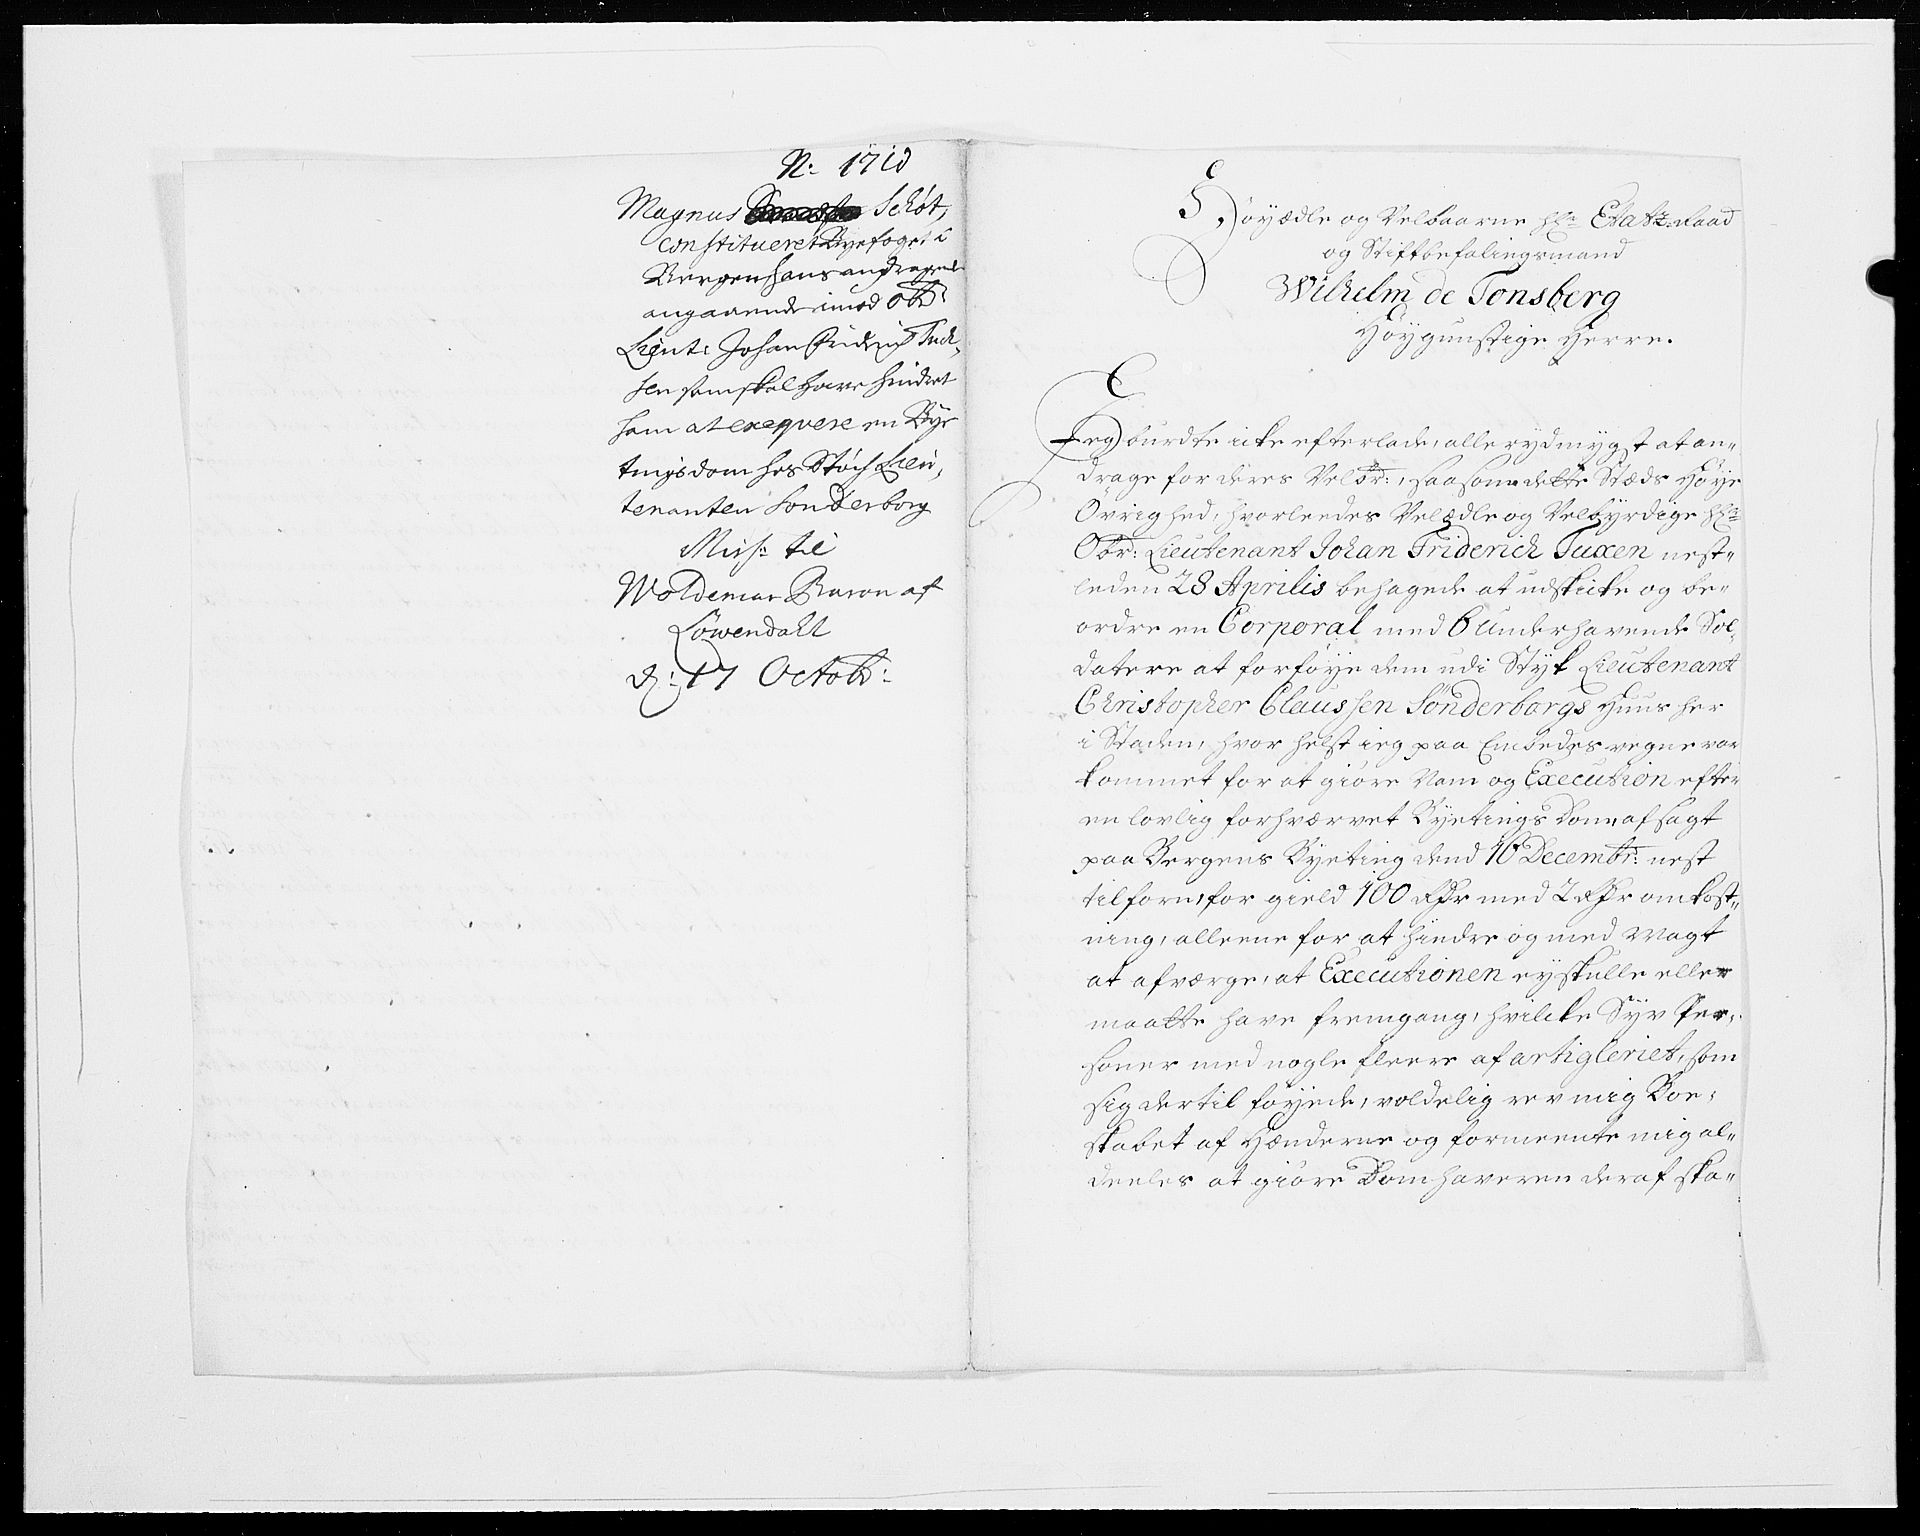 N: 1710
Magnus Schöt,
constitueret Byefoget i
Bergen hans andragende
angaaende imod Obr:
Lieut: Johan Friderich Tuch,
sen som skal have hindret
ham at exeqvere en Bye
tingsdom hos Stöch Lieu,
tenanten Sonderborg
Miss: til
Woldemar Baron af
Löwendahl
d: 17 Octobr:
Höyædle og Velbaarne Hr. Etatz-Raad
og Stiftbefalingsmand
Wilhelm de Tonsberg
Höygunstige Herre.
Jeg burdte icke efterlade, allerydmygst at an„
drage for deres Velbr:, saasom dette Stæds Høye
Øvrighed, hvorleedes Velædle og Velbyrdige Hr.
Obr: Lieutenant Johan Friderich Tuxen nest„
leden 28 Aprilis behagede at udskicke og be„
ordre en Corporal med 6 underhavende Sol„
datere at forföye dem udi Styk Lieutenant
Christopher Claussen Sønderborgs Huus her
i Staden, hvor helst ieg paa Embedes vegne var
kommet for at giöre Nam og Execution efter
en lovlig forhværvet Byetings Dom, afsagt
paa Bergens Byeting dend 16 Decembr: nest
tilforn, for gield 100 Rdr med 2 Rdr omkost„
ning, alleene for at hindre og med Magt
at afværge, at Executionen ey skulle eller
maatte have fremgang, hvilcke Syv Per„
soner med nogle fleere af artigleriet, som
sig dertil föyede, voldelig rev mig Boe„
skabet af Hænderne og formeente mig al„
deeles at giöre Domhaveren deraf ska„